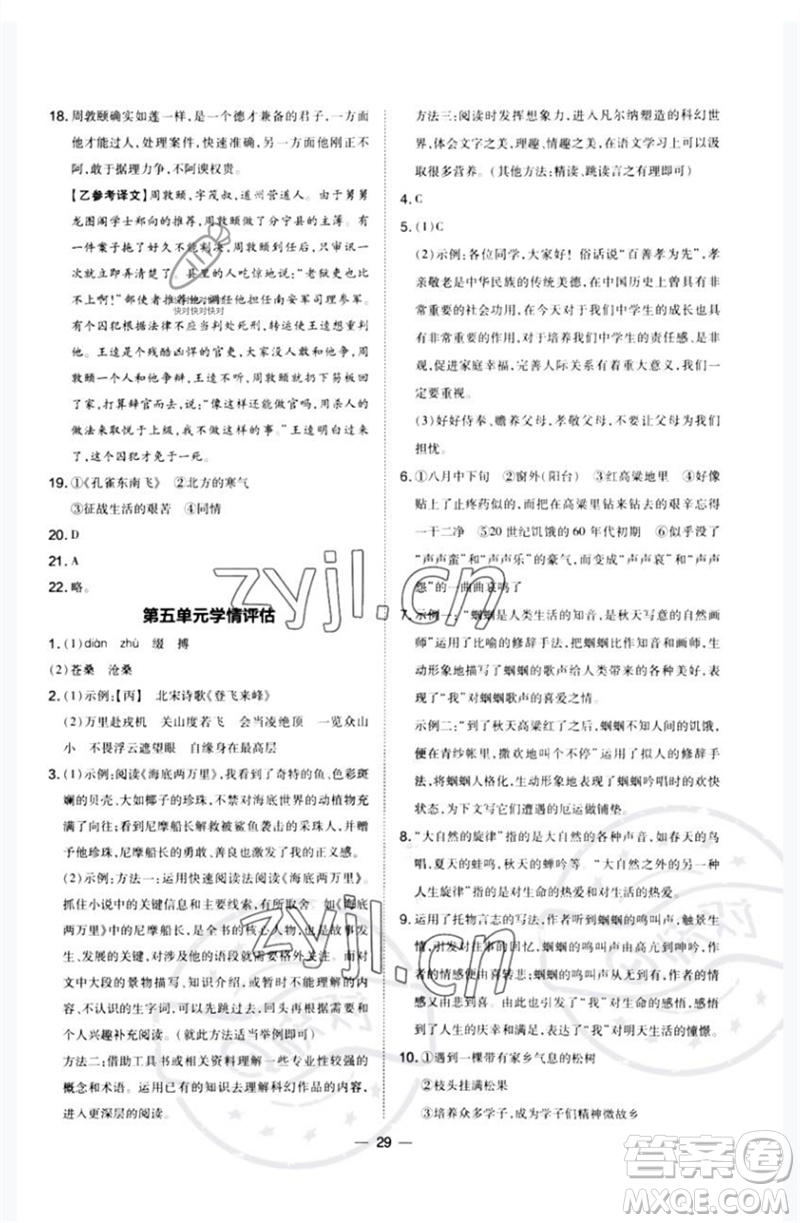 18. 周敦颐确实如莲一样，是一个德才兼备的君子，一方面
他才能过人，处理案件，快速准确，另一方面刚正不
阿，敢于据理力争，不阿谀权贵。
【乙参考译文】周敦颐，字茂叔，道州营道人。由于舅舅
龙图阁学士郑向的推荐，周敦颐做了分宁县的主簿。有
一件案子拖了好久不能判决，周敦颐到任后，只审讯一
次就立即弄清楚了。县里的人吃惊地说：“老狱吏也
比不上啊！”部使者推荐他，调任他担任南安军司理参军。
快对快对快对
有个囚犯根据法律不应当判处死刑，转运使王逵想重判
他。王逵是个残酷凶悍的官吏，大家没人敢和他争，周
敦颐一个人和他争辩，王逵不听，周敦颐就扔下笏板回
了家，打算辞官而去，说：“像这样还能做官吗，用杀人的
做法来取悦于上级，我不做这样的事。”王逵明白过来
了，这个囚犯才免于一死。
19. ①《孔雀东南飞》　②北方的寒气
③征战生活的艰苦　④同情
20. D
21. A
22. 略。
第五单元学情评估
1. (1)diàn　zhù　缀　搏
(2)苍桑　沧桑
2. (1)示例：【丙】　北宋诗歌《登飞来峰》
(2)万里赴戎机　关山度若飞　会当凌绝顶　一览众山
小　不畏浮云遮望眼　自缘身在最高层
3. (1)示例：阅读《海底两万里》，我看到了奇特的鱼、色彩斑
斓的贝壳、大如椰子的珍珠，不禁对海底世界的动植物充
满了向往；看到尼摩船长解救被鲨鱼袭击的采珠人，并大
方地赠予他珍珠，尼摩船长的勇敢、善良也激发了我的
正义感。
(2)示例：方法一：运用快速阅读法阅读《海底两万里》。
抓住小说中的关键信息和主要线索来阅读，如《海底两
万里》中的尼摩船长是本书的核心人物，也是故事发
生、发展的关键，阅读中要对他多加关注。而对于
文中大段的景物描写、知识介绍，或暂时不能理解的内
容、不认识的生字词，可以先跳过去，回头再根据需要和
个人兴趣补充阅读。（就此方法适当举例即可）
方法二：借助工具书或相关资料理解一些专业性较强的
概念和术语。运用已有的知识去理解科幻作品的内容，
进入更深层的阅读。
方法三：阅读时发挥想象力，进入凡尔纳塑造的科幻世
界，体会文字之美、理趣、情趣之美，在语文学习上可以吸
取很多营养。（其他方法：精读、跳读言之有理即可）
4. C
5. (1)C
(2)示例：各位同学，大家好！俗话说“百善孝为先”，孝
亲敬老是中华民族的传统美德，在中国历史上曾发挥过
重要的社会功用，在今天对我们中学生的成长也具有非
凡的作用，对于培养我们中学生的责任感、感恩意识，促
进家庭幸福，完善人际关系都有着重大意义，我们一
定要重视。
(3)好好侍奉、赡养父母，孝敬父母，不要让父母为我们
担忧。
6. ①八月中下旬　②窗外(阳台)　③红高粱地里　④好像
贴上了止疼药似的，自己在高粱里钻来钻去的疼痛忘得
一干二净　⑤20世纪饥饿的60年代初期　⑥似乎没了
“声声蛮”和“声声乐”的豪气，有的尽是“声声哀”和“声声
怨”的一曲曲哀鸣了
7. 示例一：“是人类生活的知音，是富有写意的音乐和画师”
运用了比喻的修辞手法，把蝈蝈比作知音和画师，生
动形象地描写了蝈蝈的歌声给人类带来的各种美好，表
现了“我”对蝈蝈歌声的喜爱之情。
示例二：“到了秋天高粱红了，蝈蝈不知人间的饥饿，
便在青纱帐里，撒欢地叫个不停”运用了拟人的修辞手
法，将蝈蝈人格化，生动形象地写出了蝈蝈鸣叫时的欢快
状态，为下文写它们遭遇的厄运做铺垫。
8. “大自然的旋律”指的是大自然的各种声音，如春天的鸟
唱，夏天的蛙鸣，秋天的蝉吟等。“大自然之外的另一种
人生旋律”指的是对生命的热爱和对生活的热爱。
9. 运用了托物言志的写法，作者听到蝈蝈的鸣叫声，触景生
情，引发往事的回忆，蝈蝈的鸣叫声由高亢到呻吟，作者
的情感便由喜转悲；蝈蝈的生命又引发“我”对生命的感悟，感
到人生的庆幸和美好，表现了“我”对明天生活的憧憬。
10. ①遇到一棵带有家乡气息的松树
②枝头挂满松果
③培养众多学子，成为学子们精神微故乡
29
zyjl.cn
zyjl.cn
答案卷
MXQE.COM